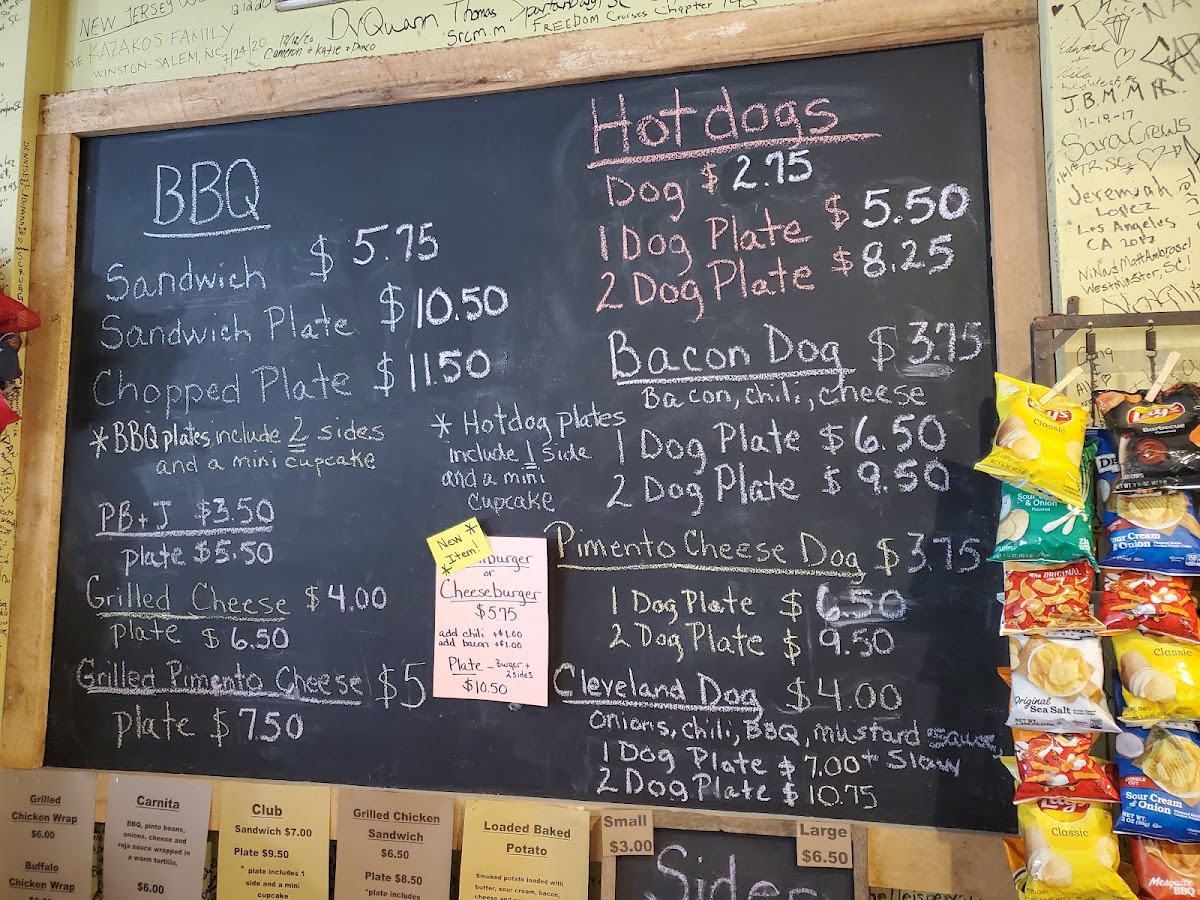 NEW JERSEY
12.12.20
THE KAZAKOS FAMILY
WINSTON-SALEM, NC 7/24/20
12/12/20
Cameron + Katie + Draco
DrQuann Thomas Spartanburg, SC
Srcm.m FREEDOM Cruises Chapter 143
BBQ
Sandwich $5.75
Sandwich Plate $10.50
Chopped Plate $11.50
*BBQ plates include 2 sides
and a mini cupcake
PB+J $3.50
plate $5.50
Grilled Cheese $4.00
plate $6.50
Grilled Pimento Cheese $5
plate $7.50
* Hotdog plates
include 1 side
and a mini
cupcake
*New*
*Item!
burger
or
Cheeseburger
$5.75
add chili +$1.00
add bacon +$1.00
Plate - Burger +
2 sides
$10.50
Hotdogs
Dog $2.75
1 Dog Plate $5.50
2 Dog Plate $8.25
Bacon Dog $3.75
Bacon, chili, cheese
1 Dog Plate $6.50
2 Dog Plate $9.50
Pimento Cheese Dog $3.75
1 Dog Plate $6.50
2 Dog Plate $9.50
Cleveland Dog $4.00
onions, chili, BBQ, mustard sauce,
1 Dog Plate $7.00 + Slaw
2 Dog Plate $10.75
Grilled
Chicken Wrap
$6.00
Buffalo
Chicken Wrap
Carnita
BBQ, pinto beans,
onions, cheese and
roja sauce wrapped in
a warm tortilla.
$6.00
Club
Sandwich $7.00
Plate $9.50
* plate includes 1
side and a mini
cupcake
Grilled Chicken
Sandwich
$6.50
Plate $8.50
*plate includes
Loaded Baked
Potato
Smoked potato loaded with
butter, sour cream, bacon,
Small
$3.00
Large
$6.50
Sides
Edward
Nila
Key West, FL
J.B.M.M.R.
11-19-17
Sara Crews
Jeremiah
Lopez
Los Angeles
CA 2017
Nino & Matt Ambrose!
Westminster, SC!
Lay's
Classic
Lay's
Barbecue
Sour Cream
& Onion
Sour Cream
& Onion
ORIGINAL
Original
Sea Salt
Classic
Sour Cream
& Onion
Lay's
Classic
Mesquite
BBQ